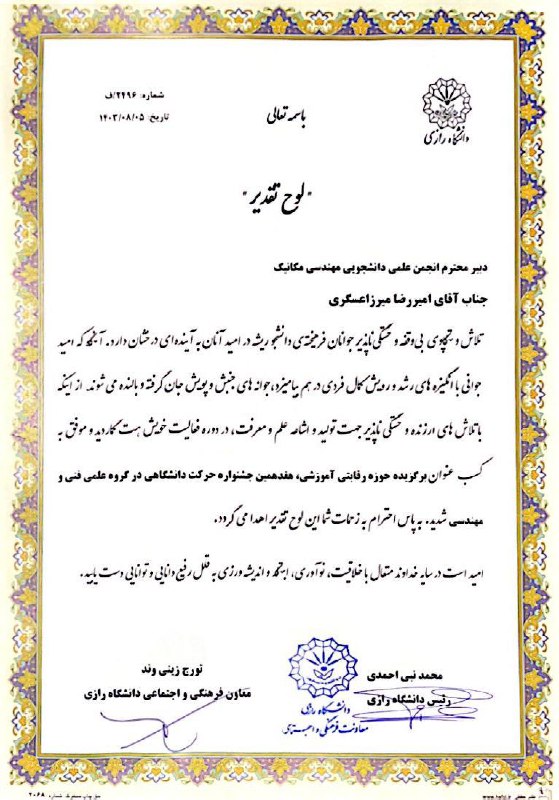 شماره: ۲۴۹۶/ف
تاریخ: ۱۴۰۳/۰۸/۰۵
باسمه تعالی
دانشگاه رازی
"لوح تقدیر"
دبیر محترم انجمن علمی دانشجویی مهندسی مکانیک
جناب آقای امیررضا میرزاعسگری
تلاش و تکاپوی بی‌وقفه و خستگی ناپذیر جوانان فرهیخته‌ی دانشجو ریشه در امید آنان به آینده‌ای درخشان دارد. آنگاه که امید
جوانی با انگیزه های رشد و رویش کمال فردی در هم بیامیزد، جوانه های جنبش و پویش جان گرفته و بالنده می شوند. از اینکه
با تلاش های ارزنده و خستگی ناپذیر جهت تولید و اشاعه علم و معرفت، در دوره فعالیت خویش همت گماردید و موفق به
کسب عنوان برگزیده حوزه رقابتی آموزشی، هفدهمین جشنواره حرکت دانشگاهی در گروه علمی فنی و
مهندسی شدید. به پاس احترام به زحمات شما این لوح تقدیر اهدا می گردد.
امید است در سایه خداوند متعال با خلاقیت، نوآوری، ابتکار و اندیشه ورزی به قلل رفیع دانایی و توانایی دست یابید.
محمد نبی احمدی
رئیس دانشگاه رازی
تورج زینی وند
معاون فرهنگی و اجتماعی دانشگاه رازی
دانشگاه رازی
معاونت فرهنگی و اجتماعی
شماره ۲۰۶۸